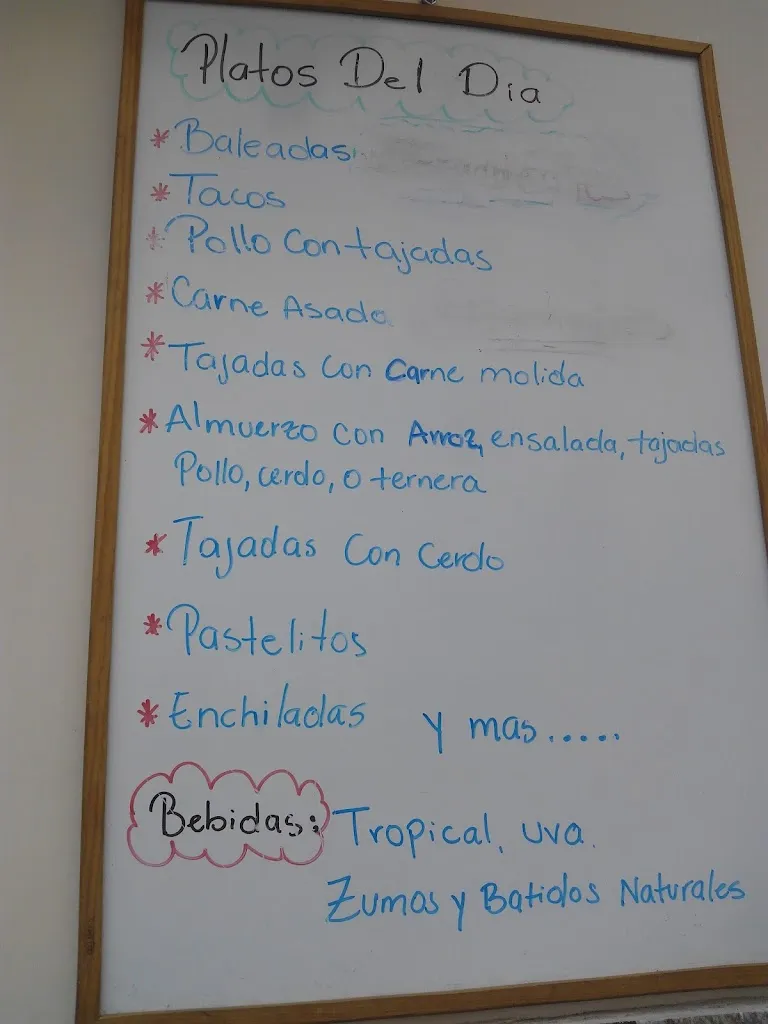 Platos Del Dia
* Baleadas
* Tacos
* Pollo Con tajadas
* Carne Asada
* Tajadas Con Carne molida
* Almuerzo con Arroz, ensalada, tajadas
Pollo, cerdo, o ternera
* Tajadas Con Cerdo
* Pastelitos
* Enchiladas y mas.....
Bebidas: Tropical, uva.
Zumos y Batidos Naturales